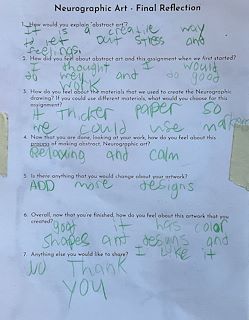 Neurographic Art - Final Reflection
1. How would you explain "abstract art"?
It is a creative way
to get out stress and
feelings.
2. How did you feel about abstract art and this assignment when we first started?
I thought I would
do mey and do good
work
3. How do you feel about the materials that we used to create the Neurographic
drawing? If you could use different materials, what would you choose for this
assignment?
thicker paper so
we could use markers
4. Now that you are done, looking at your work, how do you feel about this
process of making abstract, Neurographic art?
Relaxing and calm
5. Is there anything that you would change about your artwork?
ADD more designs
6. Overall, now that you're finished, how do you feel about this artwork that you
created?
good it has color
shapes and designs and
I like it
7. Anything else you would like to share?
No Thank
YOU